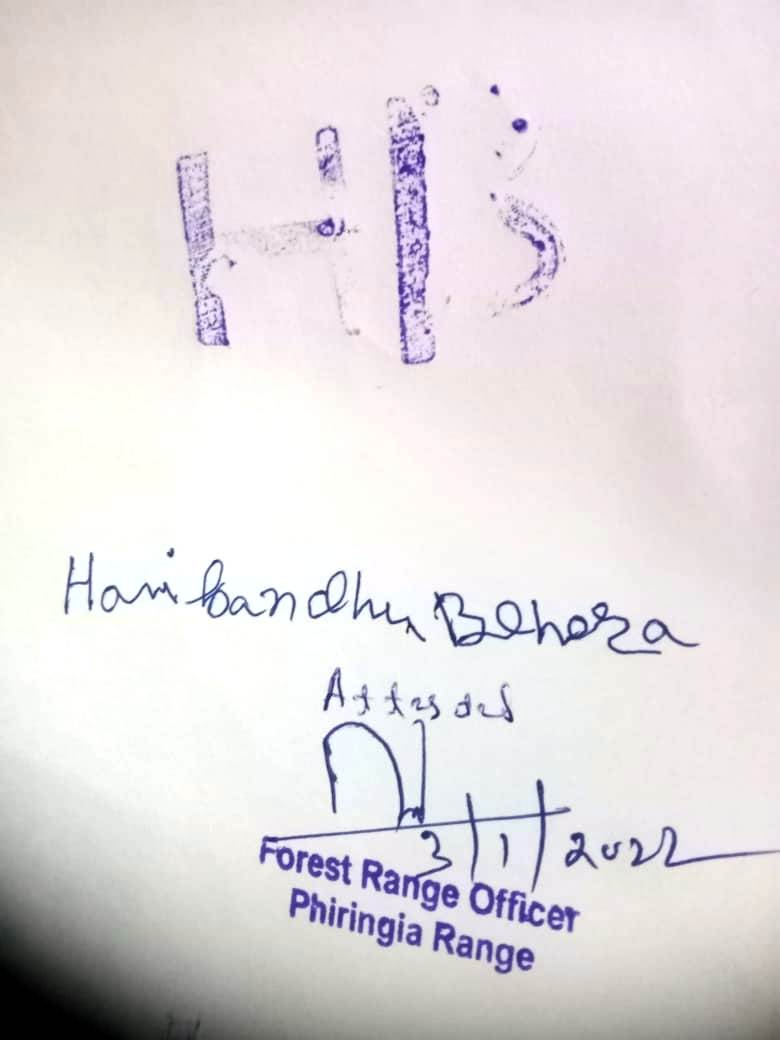 HB
Haribandhu Behera
Attested
3/1/2022
Forest Range Officer
Phiringia Range